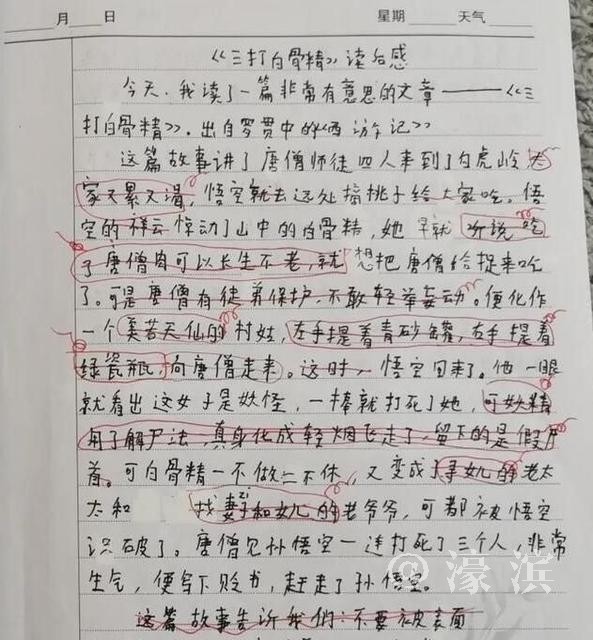 月 日 星期 天气
《三打白骨精》读后感
今天,我读了一篇非常有意思的文章——《三
打白骨精》,出自罗贯中的《西游记》
这篇故事讲了唐僧师徒四人来到了白虎岭,大
家又累又渴,悟空就去远处摘桃子给大家吃。悟
空的祥云惊动了山中的白骨精,她早就听说吃
了唐僧肉可以长生不老,就想把唐僧给捉来吃
了。可是唐僧有徒弟保护,不敢轻举妄动。便化作
一个美若天仙的村姑,左手提着青砂罐,右手提着
绿瓷瓶,向唐僧走来。这时,悟空回来了。他一眼
就看出这女子是妖怪,一棒就打死了她,可妖精
用了解尸法,真身化成轻烟飞走了,留下的是假尸
首。可白骨精一不做二不休,又变成了寻女儿的老太
太和 找妻子和女儿的老爷爷,可都被悟空
识破了。唐僧见孙悟空一连打死了三个人,非常
生气,便写下贬书,赶走了孙悟空。
这篇故事告诉我们:不要被表面
@濠滨